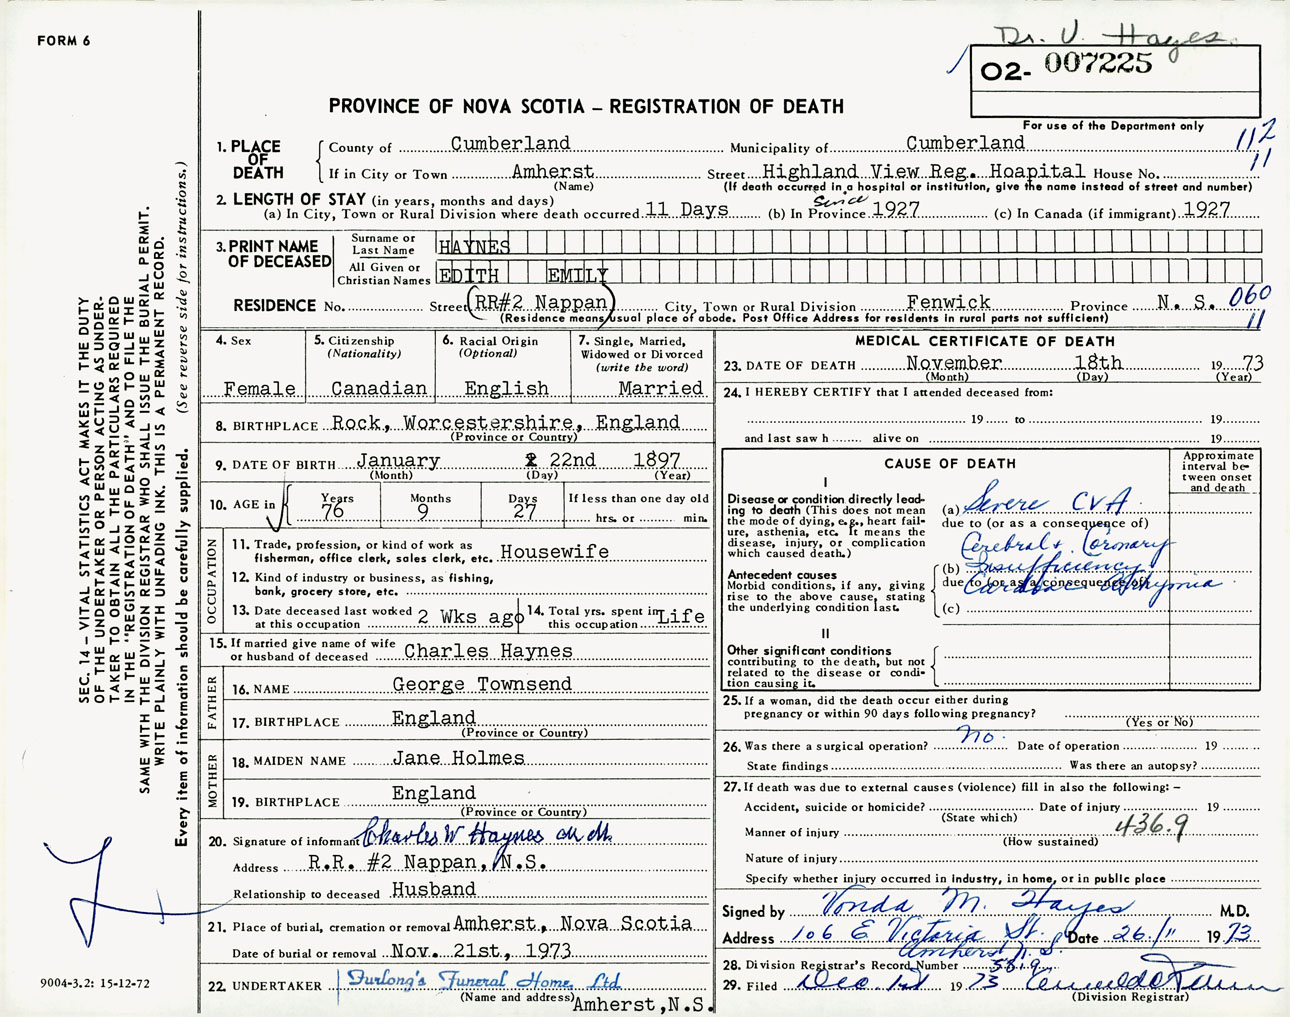 FORM 6
Dr. V. Hayes.
O2- 007225
PROVINCE OF NOVA SCOTIA – REGISTRATION OF DEATH
For use of the Department only
1. PLACE OF DEATH
County of Cumberland Municipality of Cumberland 112
If in City or Town Amherst Street Highland View Reg. Hoapital House No. 11
(Name) (If death occurred in a hospital or institution, give the name instead of street and number)
2. LENGTH OF STAY (in years, months and days)
(a) In City, Town or Rural Division where death occurred 11 Days (b) In Province since 1927 (c) In Canada (if immigrant) 1927
3. PRINT NAME OF DECEASED
Surname or Last Name HAYNES
All Given or Christian Names EDITH EMILY
RESIDENCE No. Street (RR#2 Nappan) City, Town or Rural Division Fenwick Province N. S. 060
(Residence means usual place of abode. Post Office Address for residents in rural parts not sufficient) 11
4. Sex
Female
5. Citizenship
(Nationality)
Canadian
6. Racial Origin
(Optional)
English
7. Single, Married,
Widowed or Divorced
(write the word)
Married
8. BIRTHPLACE Rock, Worcestershire, England
(Province or Country)
9. DATE OF BIRTH January 22nd 1897
(Month) (Day) (Year)
10. AGE in
Years Months Days If less than one day old
76 9 27 hrs. or min.
OCCUPATION
11. Trade, profession, or kind of work as
fisherman, office clerk, sales clerk, etc. Housewife
12. Kind of industry or business, as fishing,
bank, grocery store, etc.
13. Date deceased last worked
at this occupation 2 Wks ago
14. Total yrs. spent in
this occupation Life
15. If married give name of wife
or husband of deceased Charles Haynes
FATHER
16. NAME George Townsend
17. BIRTHPLACE England
(Province or Country)
MOTHER
18. MAIDEN NAME Jane Holmes
19. BIRTHPLACE England
(Province or Country)
20. Signature of informant Charles W Haynes
Address R.R. #2 Nappan, N.S.
Relationship to deceased Husband
21. Place of burial, cremation or removal Amherst, Nova Scotia
Date of burial or removal Nov. 21st, 1973
22. UNDERTAKER Furlong's Funeral Home, Ltd
(Name and address) Amherst, N.S.
MEDICAL CERTIFICATE OF DEATH
23. DATE OF DEATH November 18th 19 73
(Month) (Day) (Year)
24. I HEREBY CERTIFY that I attended deceased from:
19 to 19
and last saw h alive on 19
CAUSE OF DEATH
Approximate interval between onset and death
I
Disease or condition directly leading to death (This does not mean the mode of dying, e.g., heart failure, asthenia, etc. It means the disease, injury, or complication which caused death.)
(a) Severe CVA
due to (or as a consequence of)
Cerebral & Coronary
(b) Insufficiency
due to (or as a consequence of)
(c)
Antecedent causes
Morbid conditions, if any, giving rise to the above cause, stating the underlying condition last.
II
Other significant conditions
contributing to the death, but not related to the disease or condition causing it.
25. If a woman, did the death occur either during
pregnancy or within 90 days following pregnancy?
(Yes or No)
26. Was there a surgical operation? no. Date of operation 19
State findings Was there an autopsy?
27. If death was due to external causes (violence) fill in also the following: –
Accident, suicide or homicide? Date of injury 19
(State which)
Manner of injury 436.9
(How sustained)
Nature of injury
Specify whether injury occurred in industry, in home, or in public place
Signed by Vonda M. Hayes M.D.
Address 106 E Victoria St. Date 26/11 19 73
Amherst N.S.
28. Division Registrar's Record Number
29. Filed Dec. 1st 19 73
(Division Registrar)
SEC. 14 – VITAL STATISTICS ACT MAKES IT THE DUTY
OF THE UNDERTAKER OR PERSON ACTING AS UNDER-
TAKER TO OBTAIN ALL THE PARTICULARS REQUIRED
IN THE "REGISTRATION OF DEATH" AND TO FILE THE
SAME WITH THE DIVISION REGISTRAR WHO SHALL ISSUE THE BURIAL PERMIT.
WRITE PLAINLY WITH UNFADING INK. THIS IS A PERMANENT RECORD.
Every item of information should be carefully supplied. (See reverse side for instructions.)
9004-3.2: 15-12-72